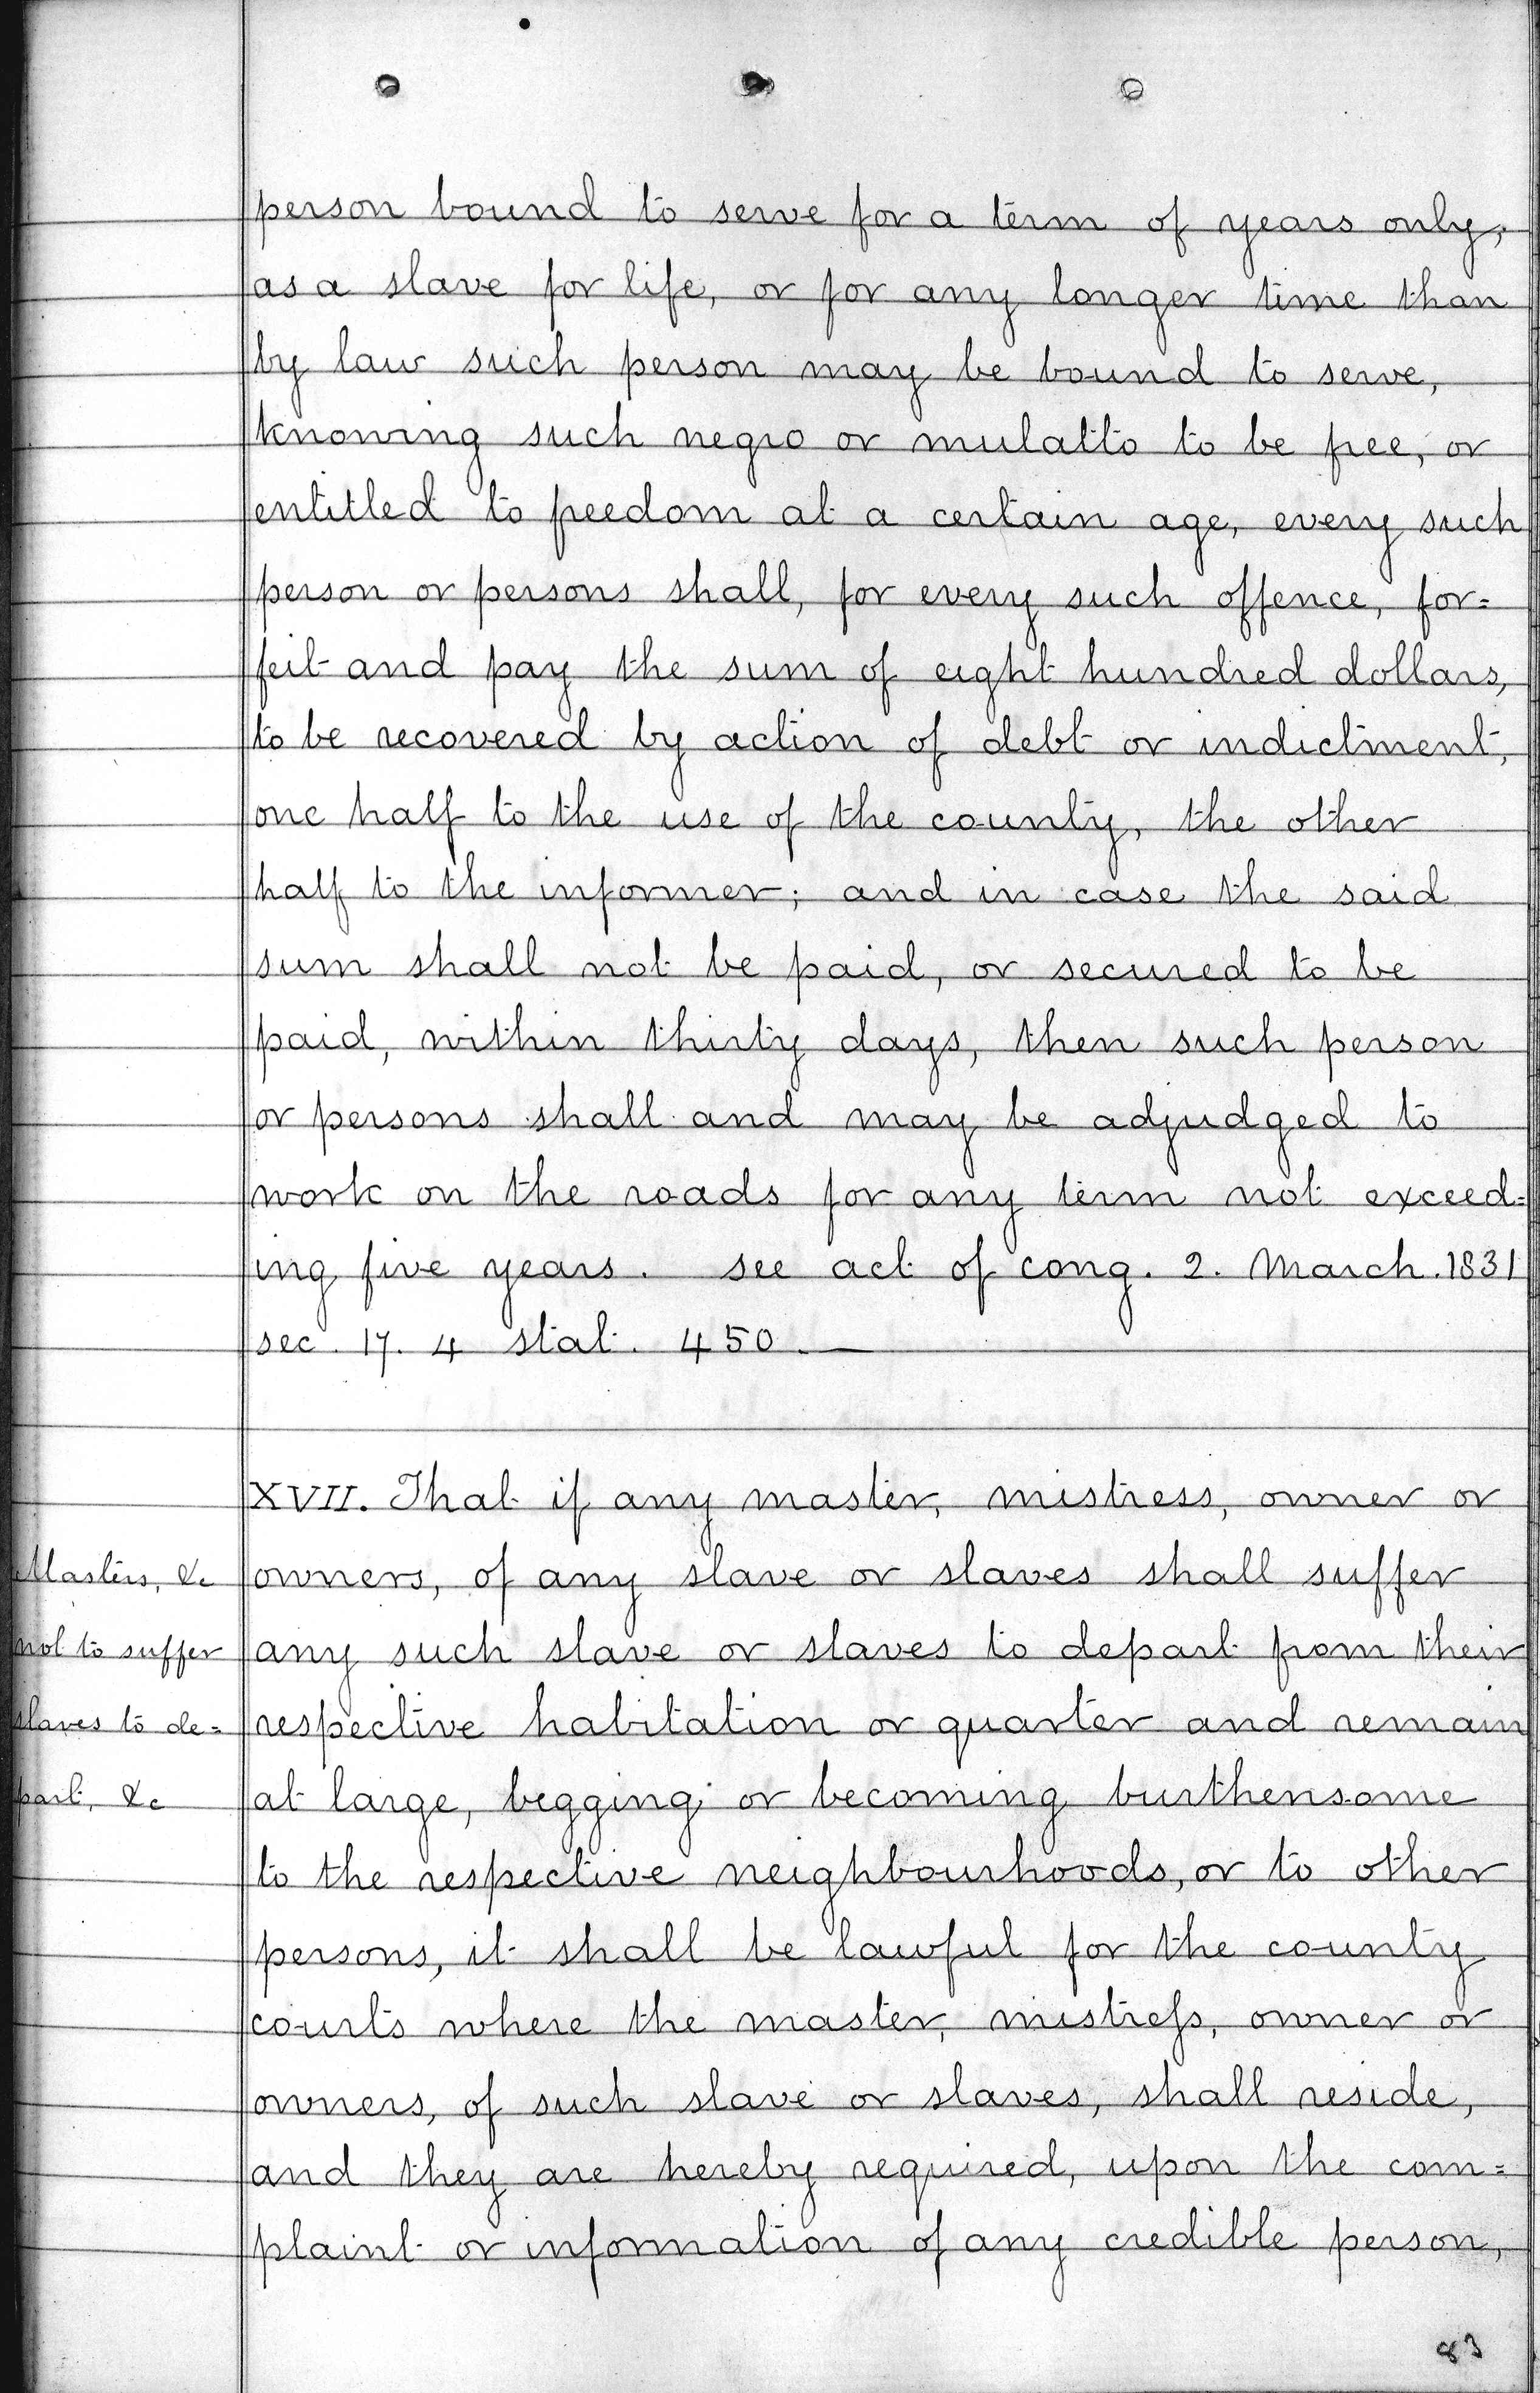 person bound to serve for a term of years only,
as a slave for life, or for any longer time than
by law such person may be bound to serve,
knowing such negro or mulatto to be free, or
entitled to freedom at a certain age, every such
person or persons shall, for every such offence, for=
feit and pay the sum of eight hundred dollars,
to be recovered by action of debt or indictment,
one half to the use of the county, the other
half to the informer; and in case the said
sum shall not be paid, or secured to be
paid, within thirty days, then such person
or persons shall and may be adjudged to
work on the roads for any term not exceed=
ing five years. see act of cong. 2. March. 1831
sec. 17. 4 stat. 450. —
XVII. That if any master, mistress, owner or
Masters, &c
not to suffer
slaves to de=
part, &c
owners, of any slave or slaves shall suffer
any such slave or slaves to depart from their
respective habitation or quarter and remain
at large, begging or becoming burthensome
to the respective neighbourhoods, or to other
persons, it shall be lawful for the county
courts where the master, mistreſs, owner or
owners, of such slave or slaves, shall reside,
and they are hereby required, upon the com=
plaint or information of any credible person,
83